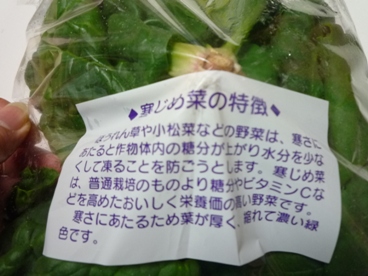 ◆寒じめ菜の特徴◆
ほうれん草や小松菜などの野菜は、寒さに
あたると作物体内の糖分が上がり水分を少な
くして凍ることを防ごうとします。寒じめ菜
は、普通栽培のものより糖分やビタミンCな
どを高めたおいしく栄養価の高い野菜です。
寒さにあたるため葉が厚く、縮れて濃い緑
色です。